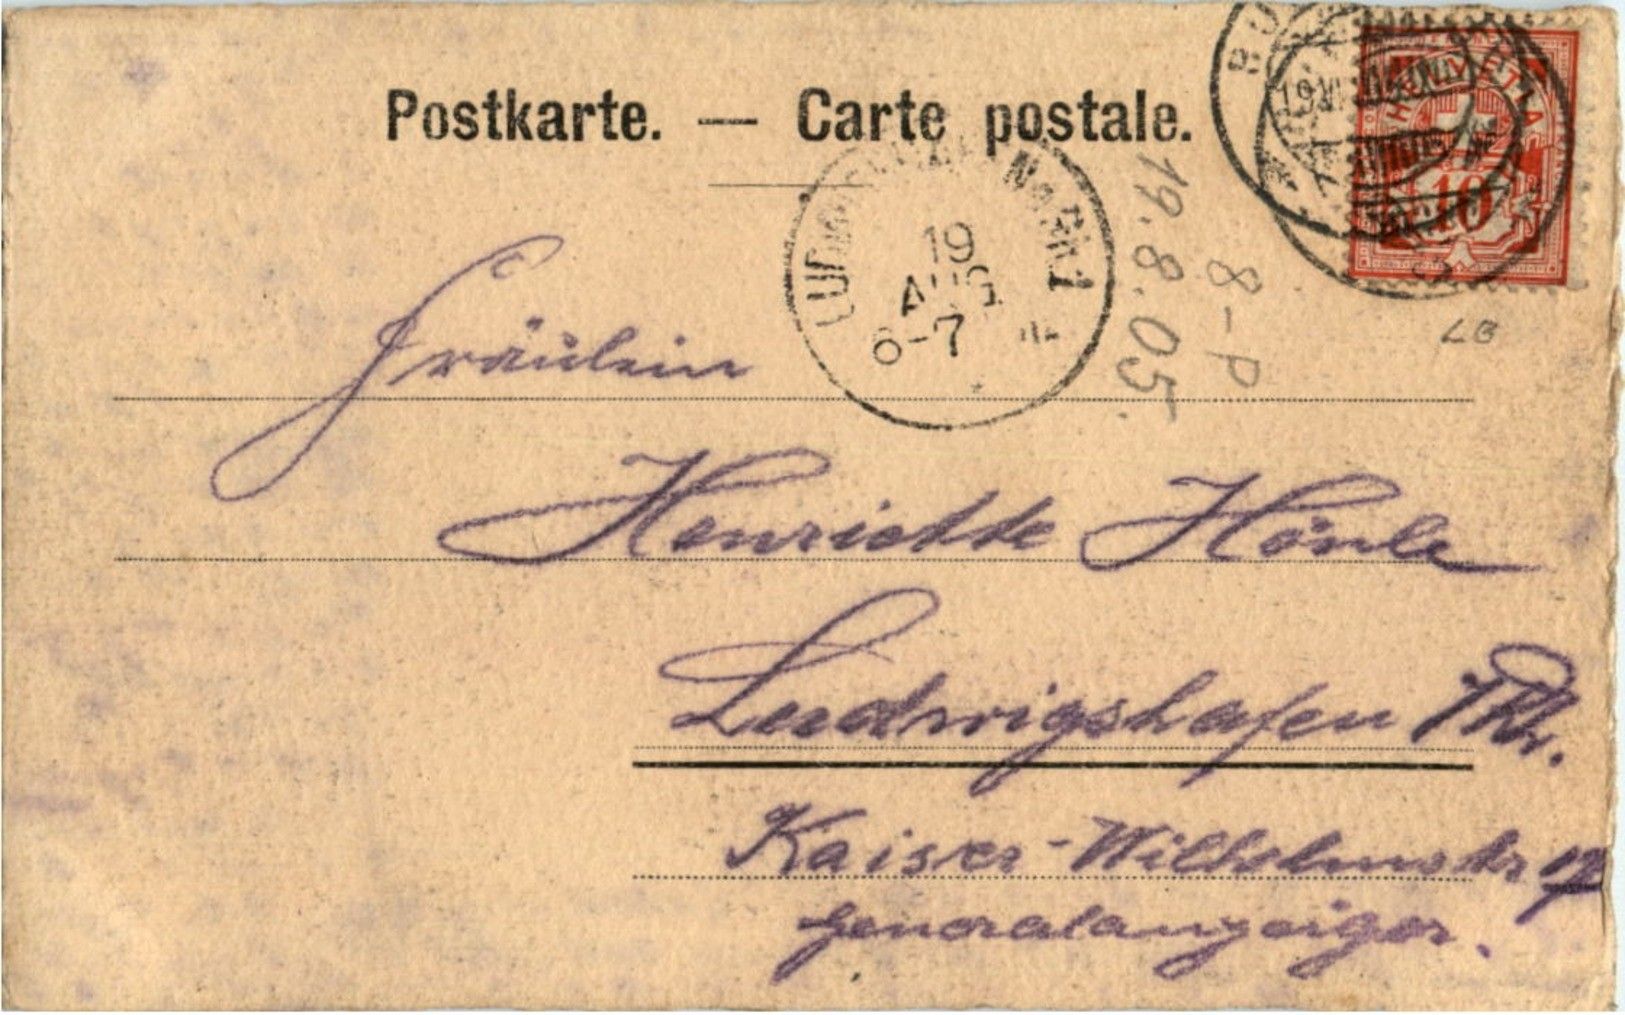 Postkarte. — Carte postale.
HELVETIA
10
19
AUG
6-7
19.8.05.
8-P
LB
Fräulein
Henriette Hönle
Ludwigshafen Rh.
Kaiser-Wilhelmstr 17
Generalanzeiger.